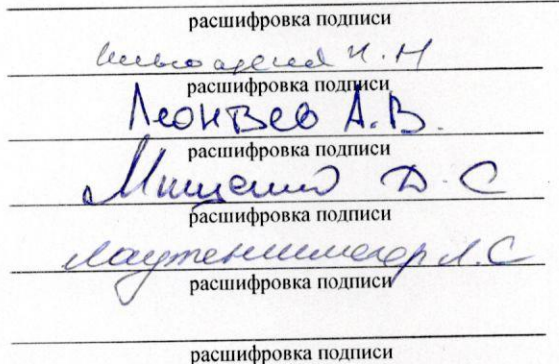 расшифровка подписи
И. Н
расшифровка подписи
Леонтьев А. В.
расшифровка подписи
Мищенко Д. С
расшифровка подписи
Л. С
расшифровка подписи
расшифровка подписи